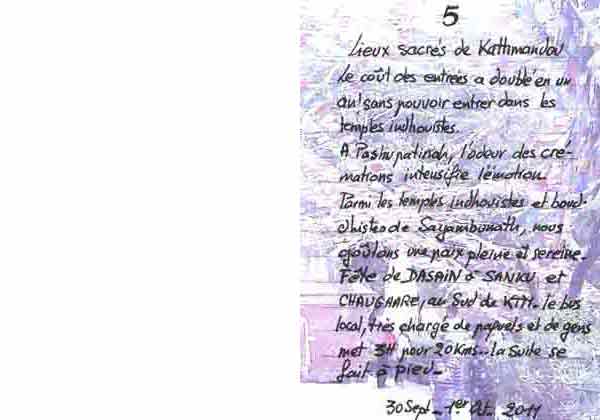 5
Lieux sacrés de Kathmandou
Le coût des entrées a doublé en un
an! sans pouvoir entrer dans les
temples indhouistes.
A Pashupatinah, l'odeur des cré-
mations intensifie l'émotion.
Parmi les temples indhouistes et boud-
dhistes de Sayambunath, nous
goûtons une paix pleine et sereine.
Fête de DASAIN à SANKU et
CHAUGAARE, au Sud de KTM. le bus
local, très chargé de paquets et de gens
met 3H pour 20Kms.. la suite se
fait à pied_
30 Sept_ 1er Oct. 2011